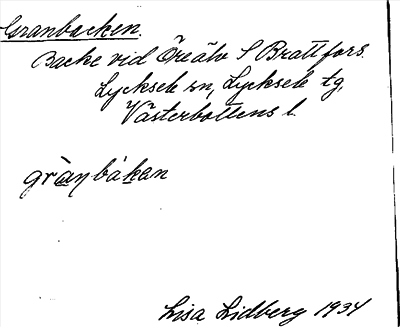 Granbacken.
Backe vid Öreälv S Brattfors.
Lycksele sn, Lycksele tg,
Västerbottens l.
gràn̥bákan
Lisa Lidberg 1934